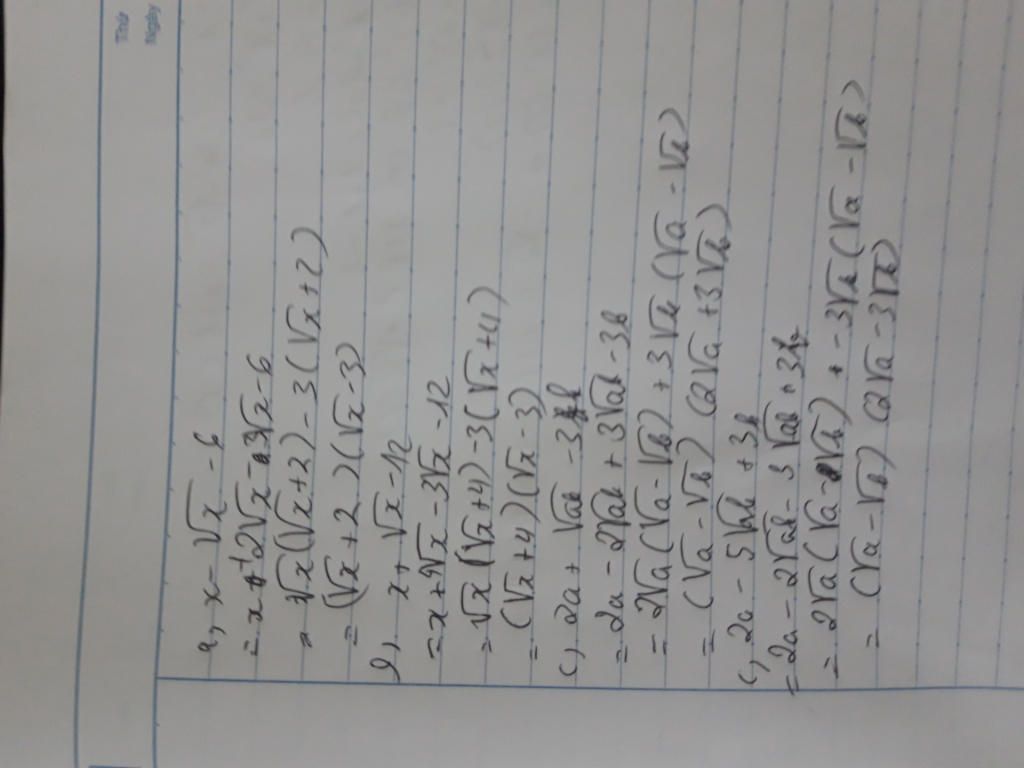 Thứ
Ngày
a, x - √x - 6
= x + 2√x - 3√x - 6
= √x(√x+2) - 3(√x+2)
= (√x+2)(√x-3)
x + √x - 12
= x + 4√x - 3√x - 12
= √x(√x+4) - 3(√x+4)
= (√x+4)(√x-3)
c, 2a + √ab - 3b
= 2a - 2√ab + 3√ab - 3b
= 2√a(√a-√b) + 3√b(√a-√b)
= (√a-√b)(2√a+3√b)
c, 2a - 5√ab + 3b
= 2a - 2√ab - 3√ab + 3b
= 2√a(√a-√b) + -3√b(√a-√b)
= (√a-√b)(2√a-3√b)